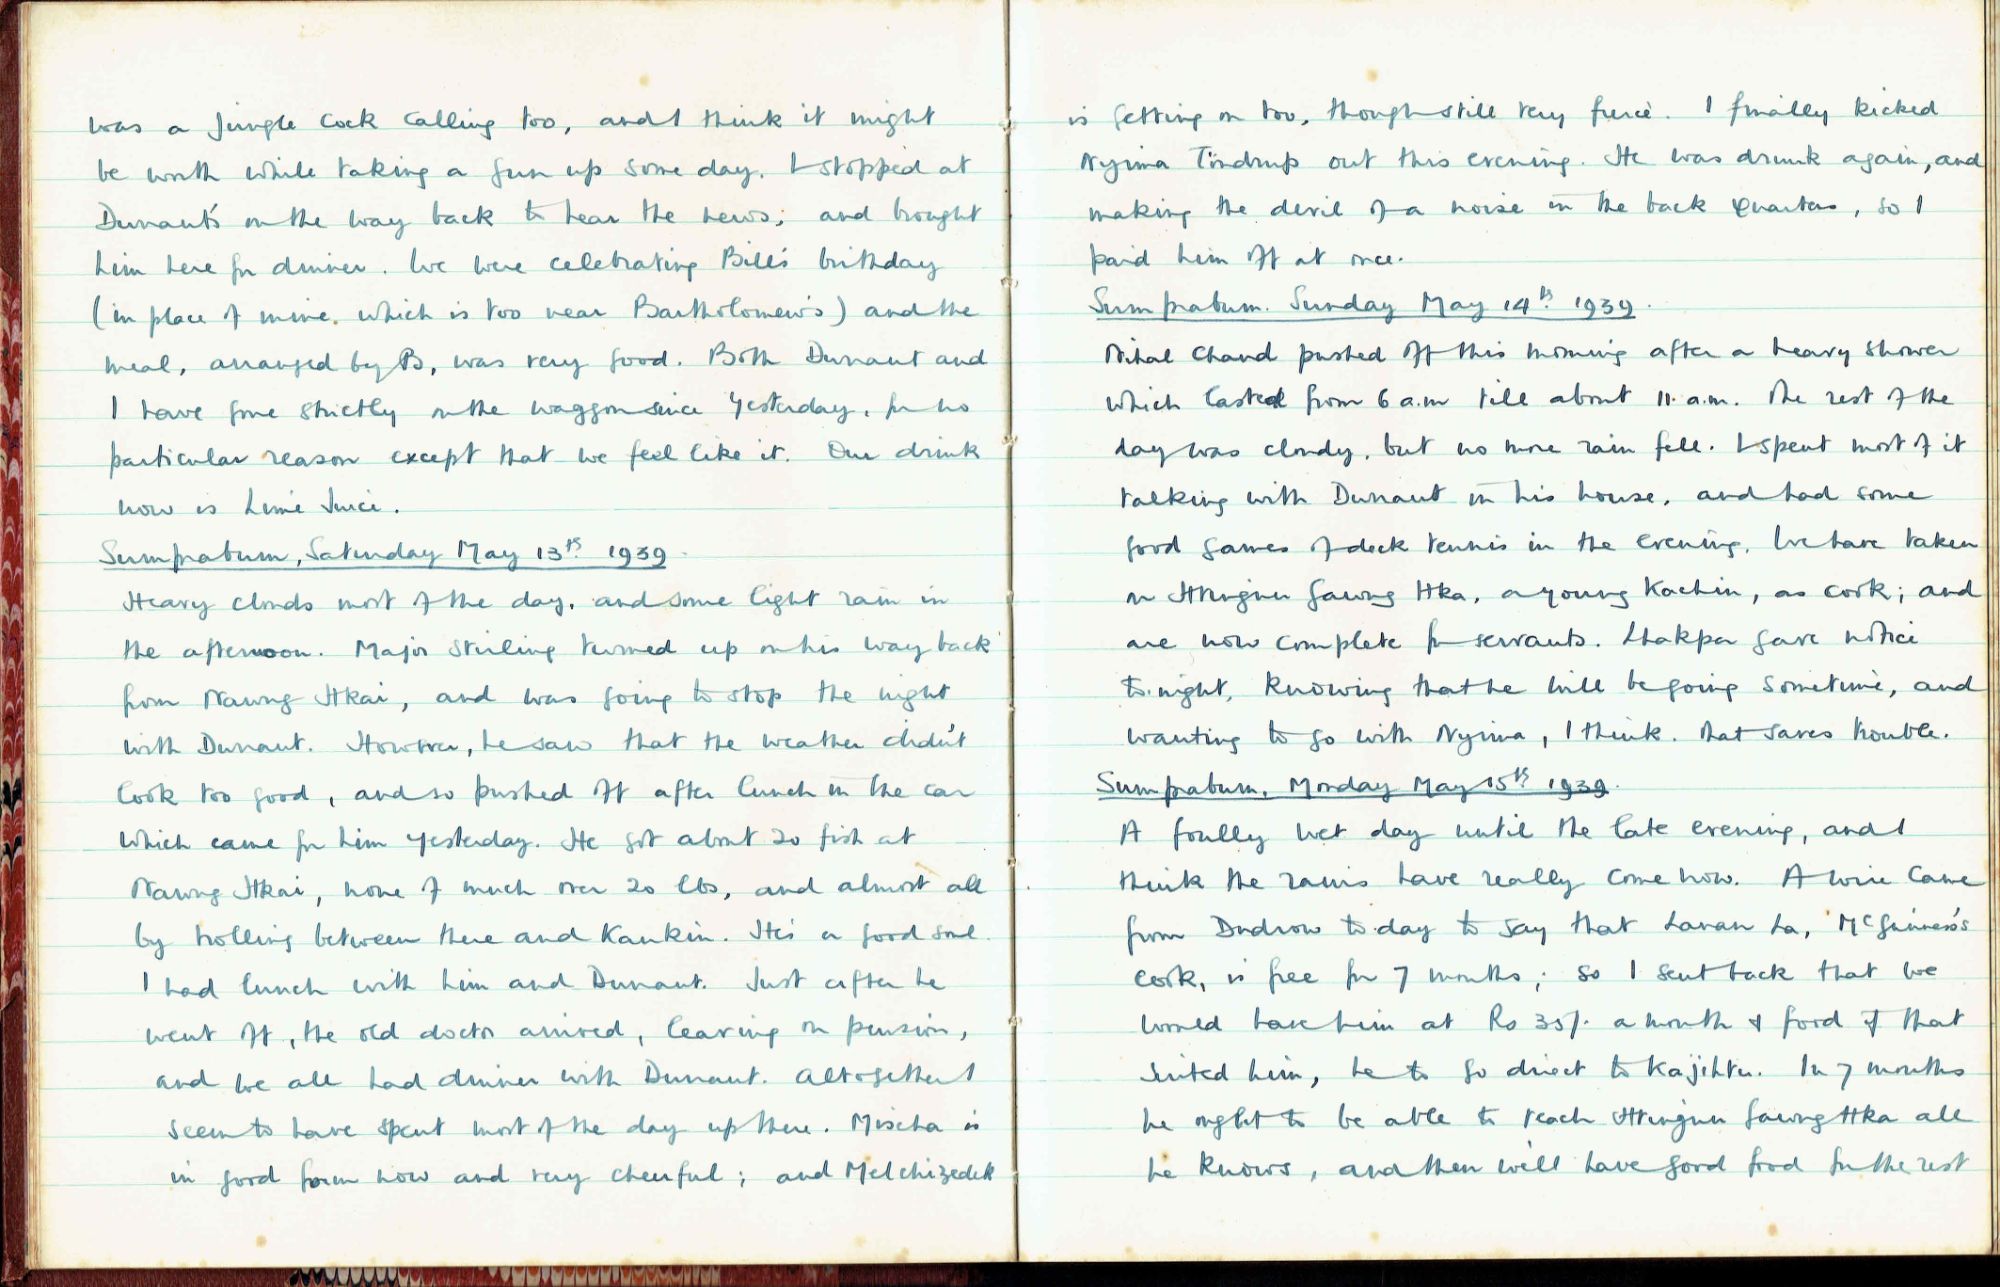 was a jungle cock calling too, and I think it might
be worth while taking a gun up some day. I stopped at
Dunant's on the way back to hear the news; and brought
him here for dinner. We were celebrating Bill's birthday
(in place of mine, which is too near Bartholomew's) and the
meal, arranged by B, was very good. Both Dunant and
I have gone strictly on the waggon since yesterday, for no
particular reason except that we feel like it. Our drink
now is Lime Juice.
Sumprabum, Saturday May 13th 1939.
Heavy clouds most of the day, and some light rain in
the afternoon. Major Stirling turned up on his way back
from Nawng Hkai, and was going to stop the night
with Dunant. However, he saw that the weather didn't
look too good, and so pushed off after lunch in the car
which came for him yesterday. He got about 20 fish at
Nawng Hkai, none of much over 20 lbs, and almost all
by trolling between there and Kankin. He's a good soul.
I had lunch with him and Dunant. Just after he
went off, the old doctor arrived, leaving on pension,
and we all had dinner with Dunant. Altogether I
seem to have spent most of the day up there. Mischa is
in good form now and very cheerful; and Melchizedek
is getting on too, though still very fierce. I finally kicked
Nyima Tindrup out this evening. He was drunk again, and
making the devil of a noise in the back quarters, so I
paid him off at once.
Sumprabum. Sunday May 14th 1939.
Nihal Chand pushed off this morning after a heavy shower
which lasted from 6 a.m till about 11 a.m. The rest of the
day was cloudy, but no more rain fell. I spent most of it
talking with Dunant in his house, and had some
good games of deck tennis in the evening. We have taken
on Gawng Hka, a young Kachin, as cook; and
are now complete for servants. Lhakpa gave notice
to-night, knowing that he will be going sometime, and
wanting to go with Nyima, I think. That saves trouble.
Sumprabum, Monday May 15th 1939.
A foully wet day until the late evening, and I
think the rains have really come now. A wire came
from Dudrow to-day to say that Lavan La, McGuiness's
cook, is free for 7 months; so I sent back that we
would take him at Rs 35/- a month & food if that
suited him, he to go direct to Kajihtu. In 7 months
he ought to be able to teach Gawng Hka all
he knows, and then we'll have good food for the rest